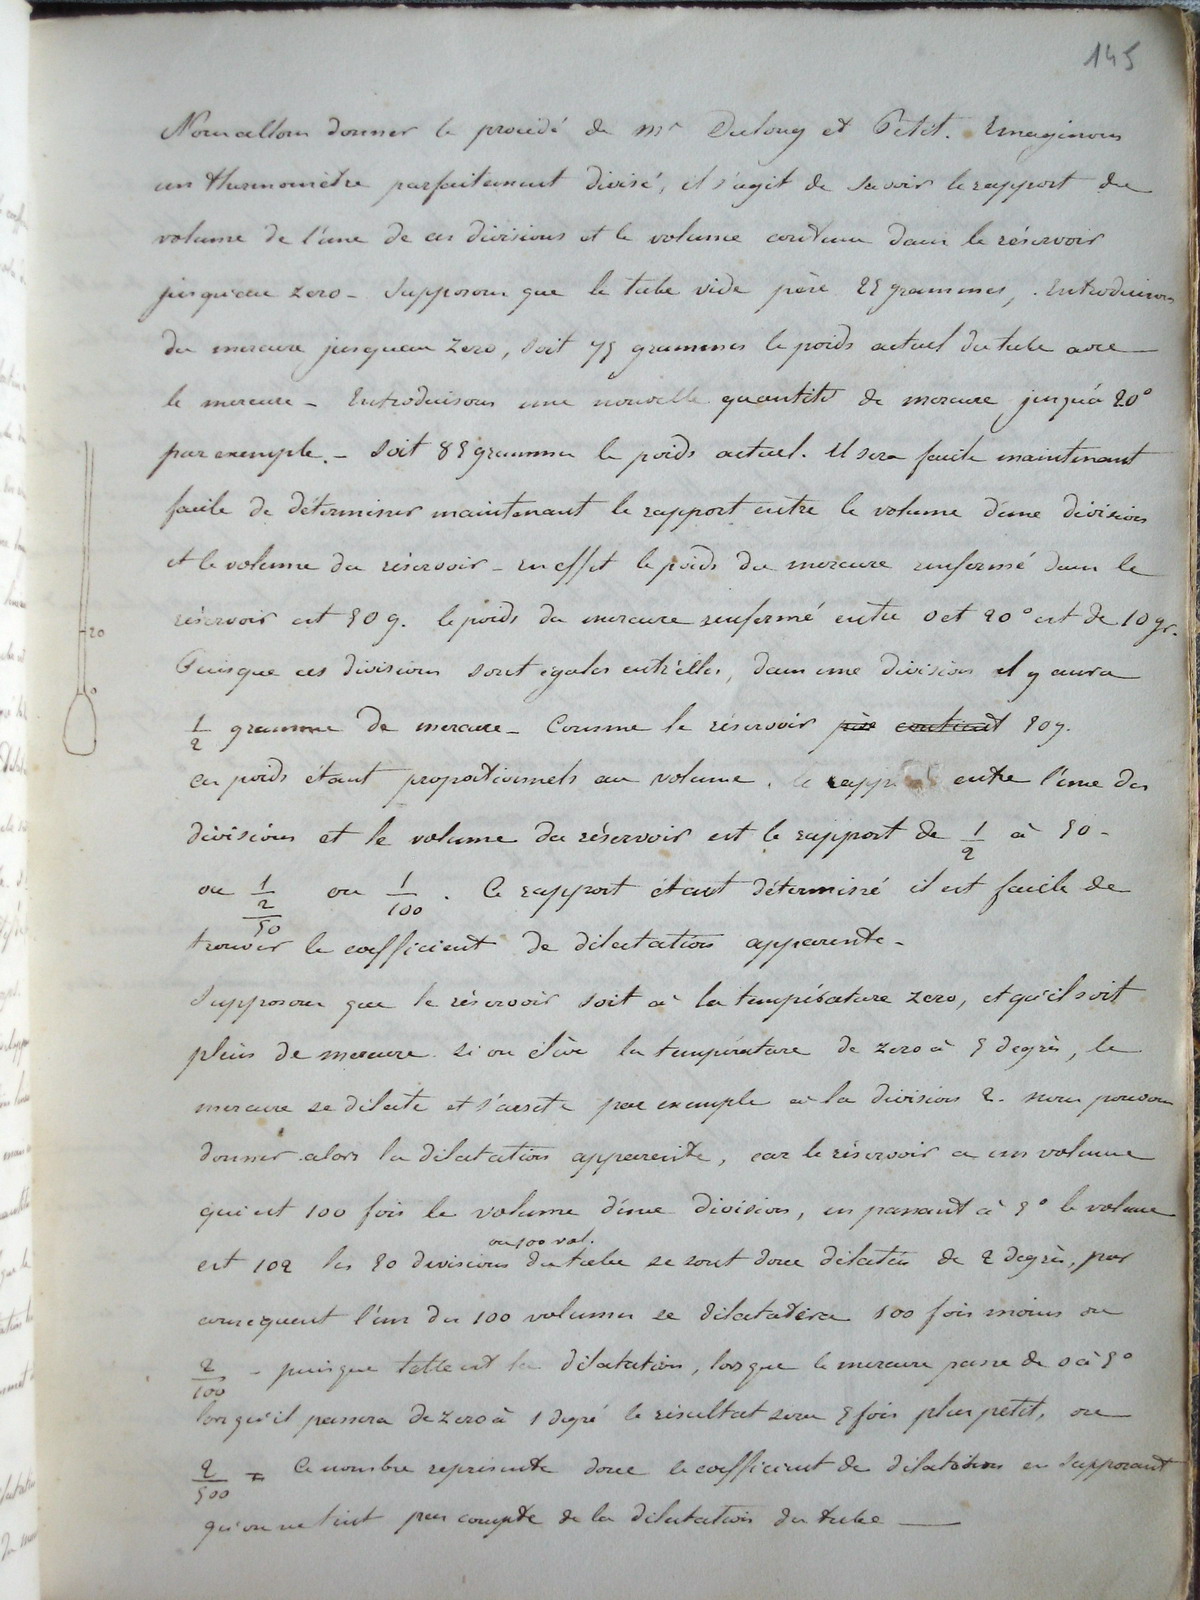 145
Nous allons donner le procédé de Mr Dulong et Petit. Imaginons
un thermomètre parfaitement divisé, il s'agit de savoir le rapport du
volume de l'une de ces divisions et le volume contenu dans le réservoir
jusqu'au zero - Supposons que le tube vide pèse 25 grammes, Introduisons
du mercure jusqu'au zero, soit 75 grammes le poids actuel du tube avec
le mercure - Introduisons une nouvelle quantité de mercure jusqu'à 20°
par exemple. - Soit 85 grammes le poids actuel. Il sera facile maintenant
facile de déterminer maintenant le rapport entre le volume d'une division
et le volume du réservoir - en effet le poids du mercure renfermé dans le
réservoir est 50 g. le poids du mercure renfermé entre 0 et 20° est de 10 gr.
20
0
Puisque ces divisions sont égales entr'elles, dans une division il y aura
1/2 gramme de mercure - Comme le réservoir pèse contient 50 g.
ces poids étant proportionnels au volume, le rapport entre l'une des
divisions et le volume du réservoir est le rapport de 1/2 à 50 -
ou 1/2/50 ou 1/100. Ce rapport étant déterminé il est facile de
trouver le coefficient de dilatation apparente -
Supposons que le réservoir soit à la température zero, et qu'il soit
plein de mercure. si on élève la température de zero à 5 degrès, le
mercure se dilate et s'arrete par exemple à la division 2. nous pouvons
donner alors la dilatation apparente, car le réservoir a un volume
qui est 100 fois le volume d'une division, en passant à 5° le volume
ou 100 vol.
est 102 les 50 divisions du tube se sont donc dilatés de 2 degrès, par
consequent l'un des 100 volumes se dilatatera 100 fois moins ou
2/100 - puisque telle est la dilatation, lorsque le mercure passe de 0 à 5°
lorsqu'il passera de zero à 1 degré le résultat sera 5 fois plus petit, ou
2/500 = Ce nombre représente donc le coefficient de dilatation en supposant
qu'on ne tint pas compte de la dilatation du tube